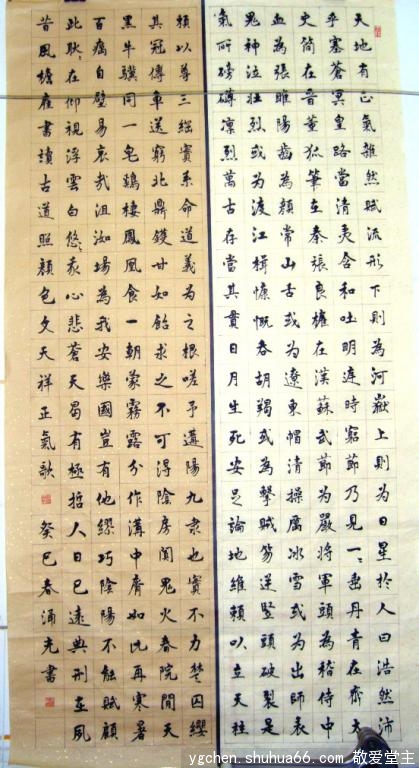 天地有正氣雜然賦流形下則為河嶽上則為日星於人曰浩然沛
乎塞蒼冥皇路當清夷含和吐明庭時窮節乃見一々垂丹青在齊太
史簡在晉董狐筆在秦張良椎在漢蘇武節為嚴將軍頭為嵇侍中
血為張睢陽齒為顏常山舌或為遼東帽清操厲冰雪或為出師表
鬼神泣壯烈或為渡江楫慷慨吞胡羯或為擊賊笏逆豎頭破裂是
氣所磅礴凜烈萬古存當其貫日月生死安足論地維賴以立天柱
賴以尊三綱實系命道義為之根嗟予遘陽九隸也實不力楚囚纓
其冠傳車送窮北鼎鑊甘如飴求之不可得陰房闃鬼火春院閟天
黑牛驥同一皂鷄棲鳳凰食一朝蒙霧露分作溝中瘠如此再寒暑
百癘自辟易哀哉沮洳場為我安樂國豈有他繆巧陰陽不能賊顧
此耿々在仰視浮雲白悠々我心悲蒼天曷有極哲人日已遠典刑在夙
昔風檐展書讀古道照顏色文天祥正氣歌 癸巳春涌光書
ygchen.shuhua66.com/敬爱堂主